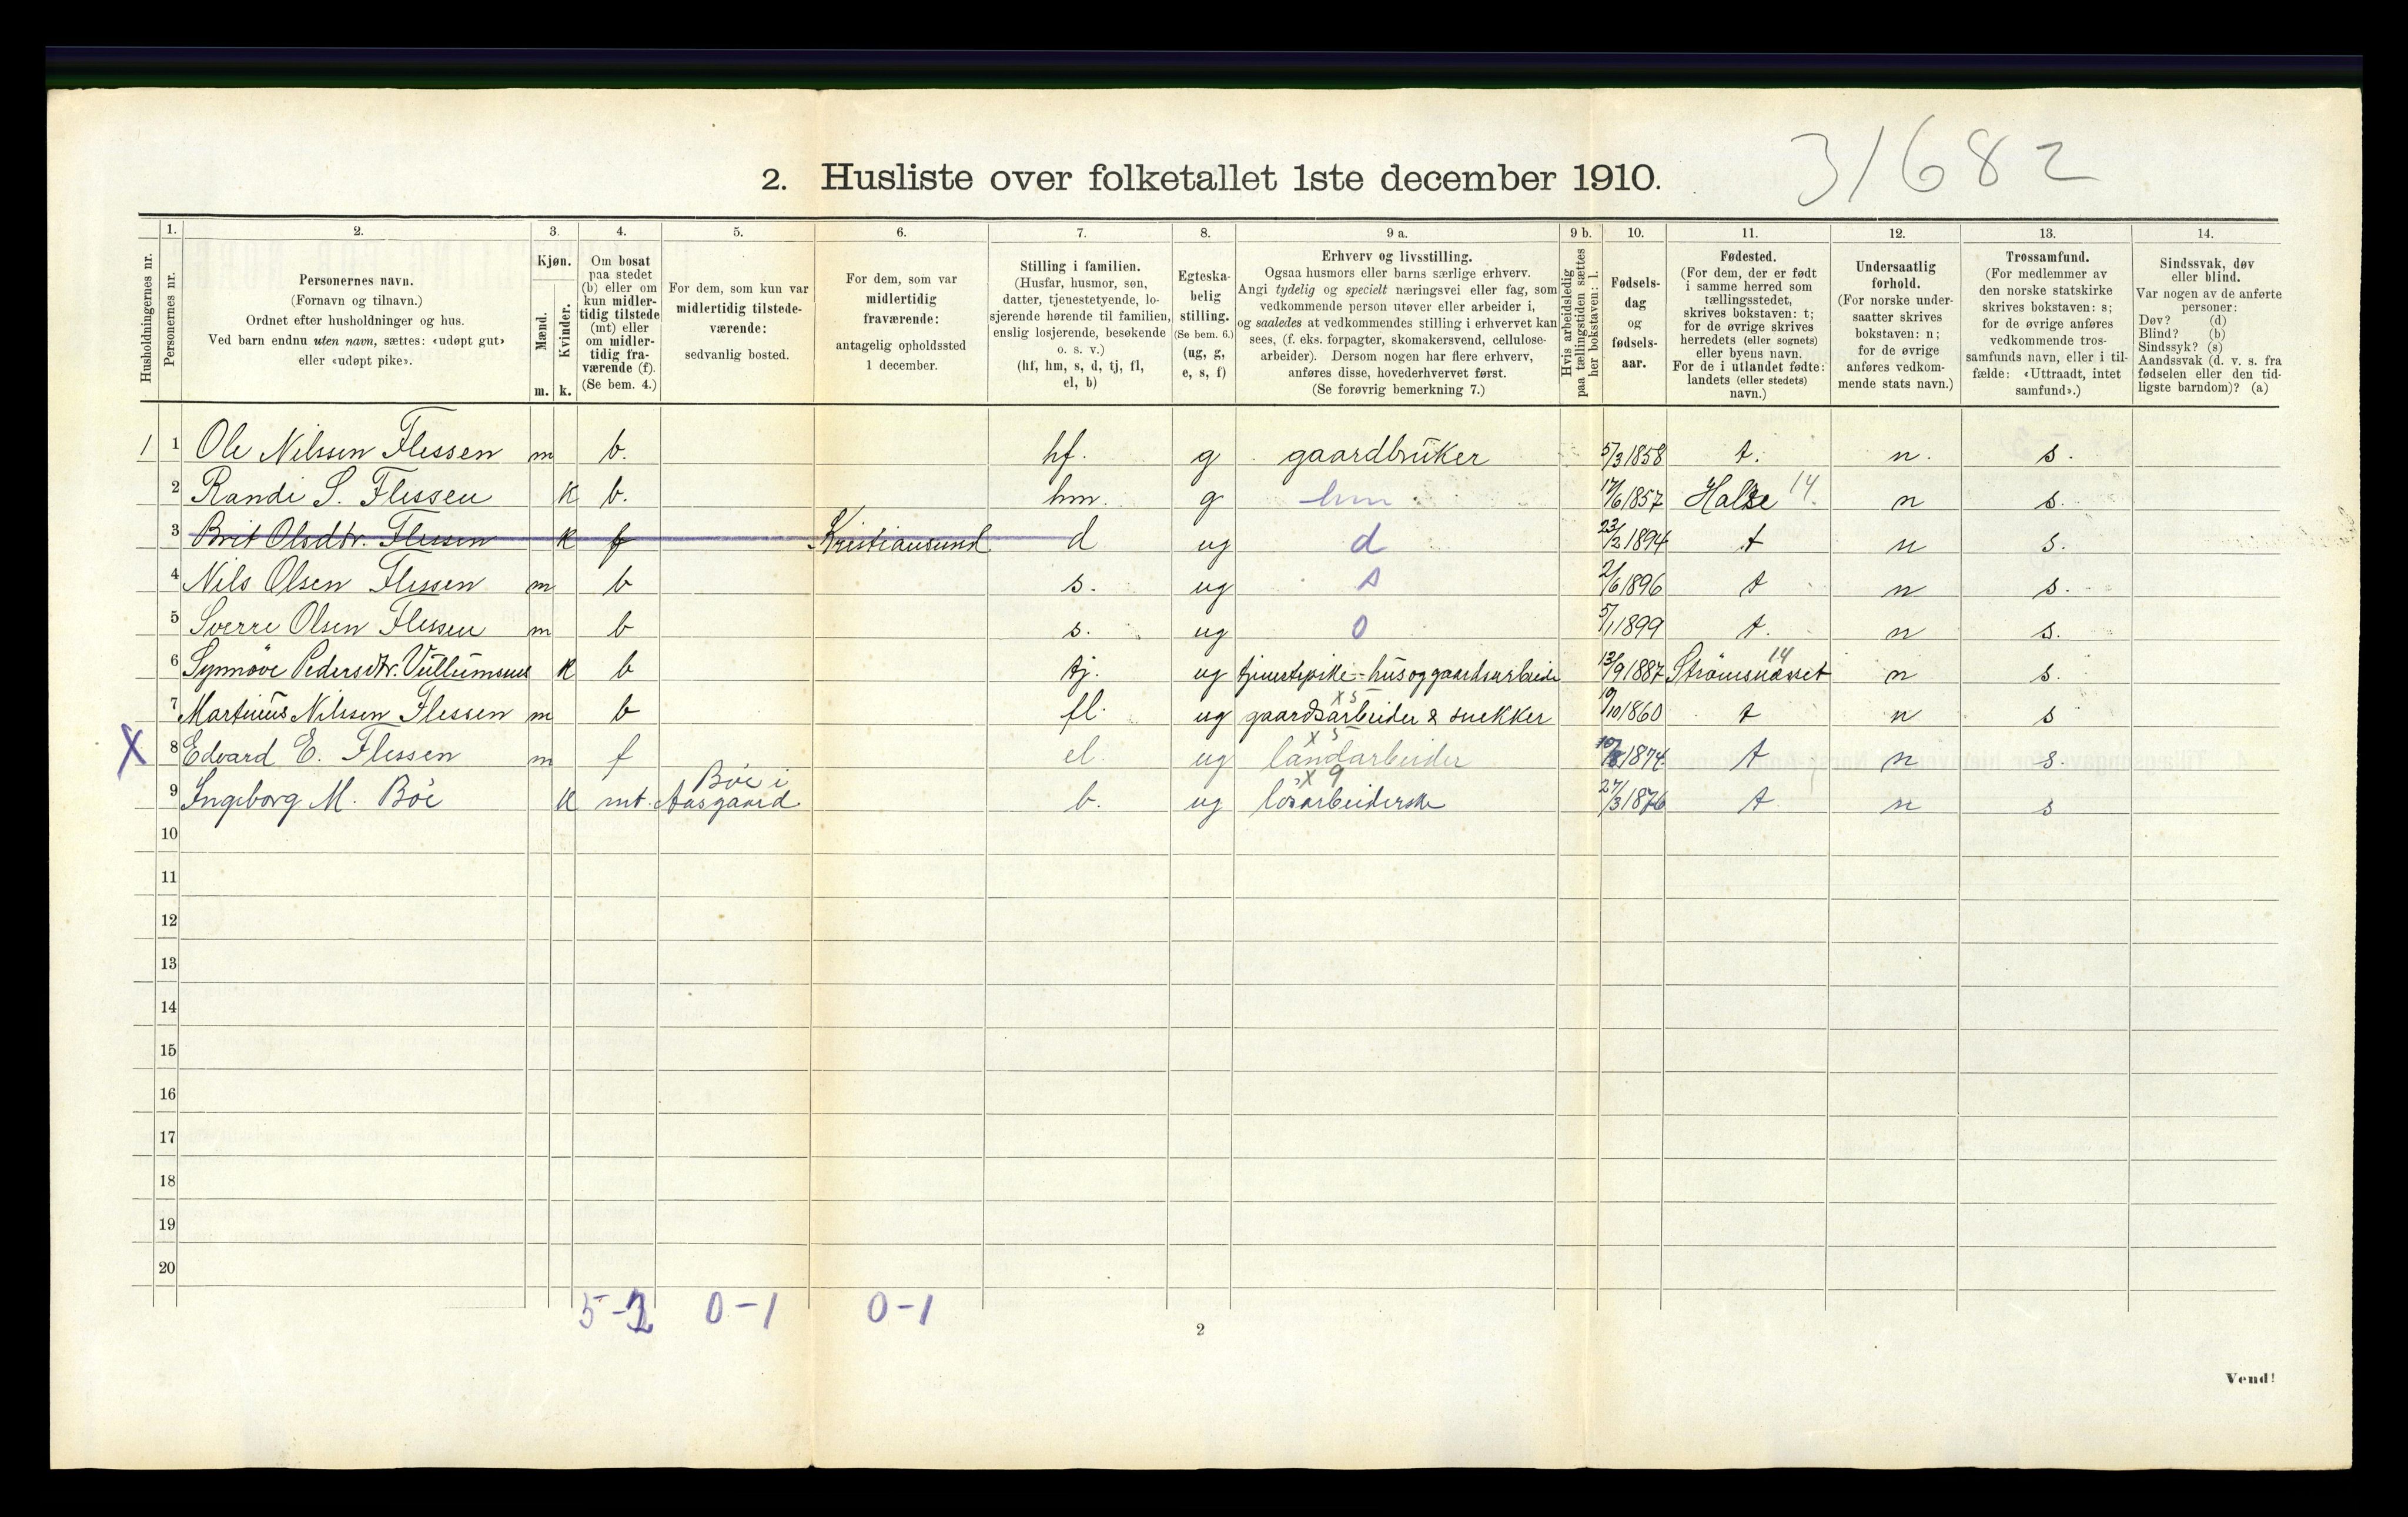 31682
2. Husliste over folketallet 1ste december 1910.
Husholdningernes nr.
1.
Personernes nr.
2.
Personernes navn.
(Fornavn og tilnavn.)
Ordnet efter husholdninger og hus.
Ved barn endnu uten navn, sættes: «udøpt gut»
eller «udøpt pike».
3.
Kjøn.
Mænd.
Kvinder.
m. k.
4.
Om bosat
paa stedet
(b) eller om
kun midler-
tidig tilstede
(mt) eller
om midler-
tidig fra-
værende (f).
(Se bem. 4.)
5.
For dem, som kun var
midlertidig tilstede-
værende:
sedvanlig bosted.
6.
For dem, som var
midlertidig
fraværende:
antagelig opholdssted
1 december.
7.
Stilling i familien.
(Husfar, husmor, søn,
datter, tjenestetyende, lo-
sjerende hørende til familien,
enslig losjerende, besøkende
o. s. v.)
(hf, hm, s, d, tj, fl,
el, b)
8.
Egteska-
belig
stilling.
(Se bem. 6.)
(ug, g,
e, s, f)
9 a.
Erhverv og livsstilling.
Ogsaa husmors eller barns særlige erhverv.
Angi tydelig og specielt næringsvei eller fag, som
vedkommende person utøver eller arbeider i,
og saaledes at vedkommendes stilling i erhvervet kan
sees, (f. eks. forpagter, skomakersvend, cellulose-
arbeider). Dersom nogen har flere erhverv,
anføres disse, hovederhvervet først.
(Se forøvrig bemerkning 7.)
9 b.
Hvis arbeidsledig
paa tællingstiden sættes
her bokstaven: l.
10.
Fødsels-
dag
og
fødsels-
aar.
11.
Fødested.
(For dem, der er født
i samme herred som
tællingsstedet,
skrives bokstaven: t;
for de øvrige skrives
herredets (eller sognets)
eller byens navn.
For de i utlandet fødte:
landets (eller stedets)
navn.)
12.
Undersaatlig
forhold.
(For norske under-
saatter skrives
bokstaven: n;
for de øvrige
anføres vedkom-
mende stats navn.)
13.
Trossamfund.
(For medlemmer av
den norske statskirke
skrives bokstaven: s;
for de øvrige anføres
vedkommende tros-
samfunds navn, eller i til-
fælde: «Uttraadt, intet
samfund».)
14.
Sindssvak, døv
eller blind.
Var nogen av de anførte
personer:
Døv? (d)
Blind? (b)
Sindssyk? (s)
Aandssvak (d. v. s. fra
fødselen eller den tid-
ligste barndom)? (a)
1 1 Ole Nilssen Flessen m b. hf. g gaardbruker 5/3 1858 t. n. s.
2 Randi S. Flessen k b. hm. g hm 17/6 1857 Halse 14 n s.
3 Brit Olsdtr. Flessen k f Kristiansund d ug d 23/2 1894 t n s.
4 Nils Olsen Flessen m b s. ug s 2/6 1896 t n s.
5 Sverre Olsen Flessen m b s. ug 0 5/1 1899 t. n s.
6 Synnöve Pedersdtr. Vullumsnes k b tj. ug tjenestepike - hus og gaardsarbeide 13/9 1887 Strömsnæsset 14 n s.
7 Martinus Nilssen Flessen m b fl. ug gaardsarbeider & snekker x 5 19/10 1860 t n s
X 8 Edvard E. Flessen m f el. ug landarbeider x 5 1874 t n s.
9 Ingeborg M. Böe k mt. Böe i Aasgaard b. ug løsarbeiderske x 9 27/3 1876 t n s
10
11
12
13
14
15
16
17
18
19
20
5-2 0-1 0-1
2
Vend!